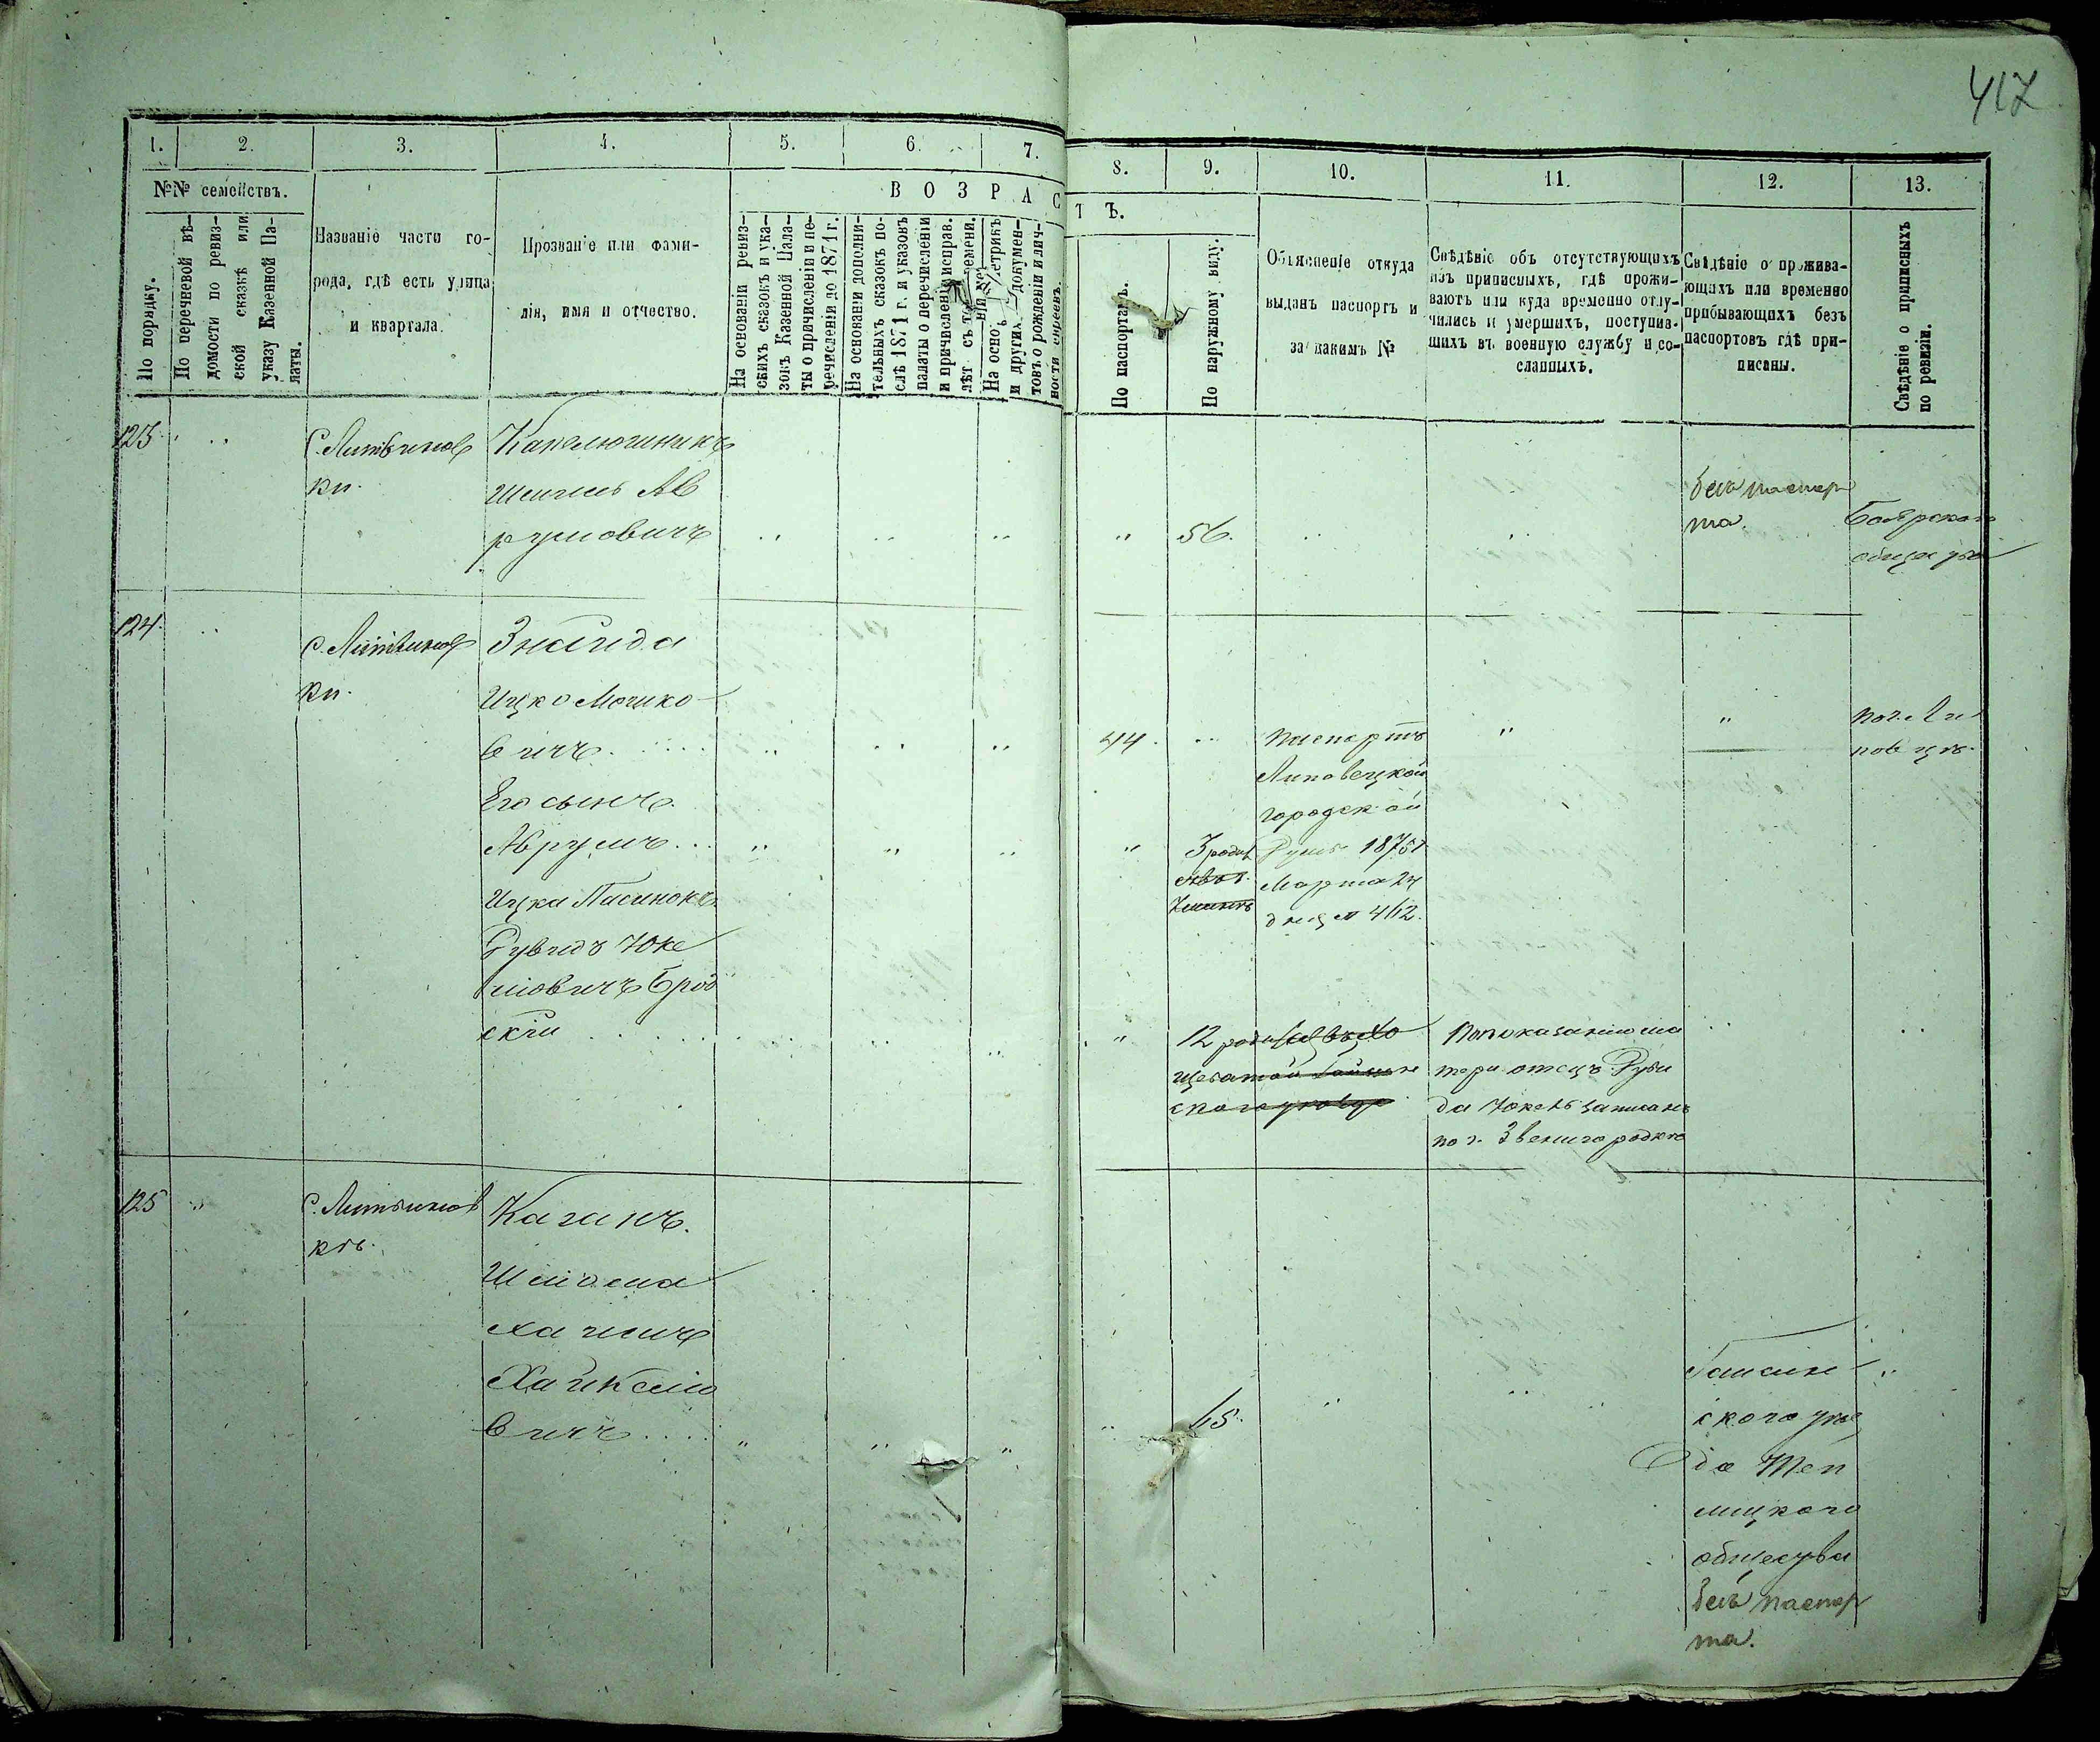 417
1. 2. 3. 4. 5. 6. 7. 8. 9. 10. 11. 12. 13.
№№ семействъ.
По порядку.
По перечневой вѣ-
домости по ревиз-
ской сказкѣ или
указу Казенной Па-
латы.
Названіе части го-
рода, гдѣ есть улица
и квартала.
Прозваніе или фами-
лія, имя и отчество.
ВОЗРАСТЪ.
На основаніи ревиз-
скихъ сказокъ и ука-
зокъ Казенной Пала-
ты о причисленіи и пе-
речисленіи до 1871 г.
На основаніи дополни-
тельныхъ сказокъ по-
слѣ 1871 г. и указовъ
палаты о перечисленіи
и причисленіи исправ.
лѣт съ
На осно. метрикъ
и другихъ докумен-
товъ о рожденіи и лич-
ности евреевъ.
По паспортамъ.
По наружному виду.
Объясненіе откуда
выданъ паспортъ и
за какимъ №
Свѣдѣніе объ отсутствующихъ
изъ приписныхъ, гдѣ прожи-
ваютъ или куда временно отлу-
чились и умершихъ, поступив-
шихъ въ военную службу и со-
сланныхъ.
Свѣдѣніе о прожива-
ющихъ или временно
прибывающихъ безъ
паспортовъ гдѣ при-
писаны.
Свѣдѣніе о приписныхъ
по ревизіи.
123
С. Литвинов
ки.
Капелюшникъ
Ав
румовичъ
56.
безъ паспор
та.
Боярскаго
общества
124.
С. Литвинов
ки.
Знайда
Ицко Мошко
вичъ
44.
паспортъ
Липовецкой
городской
Думы 1875 г
Марта 24
дня № 462.
по г. Ли
повцу.
Его сынъ
Аврумъ
3 родил
Ицка Пасинокъ
Рувидъ Юке
ловичъ Брод
скій
12 родил
По показанію ма
тери отецъ Руви
да Юкель записанъ
по г. Звенигородкѣ
125
С. Литвинов
кѣ.
Каганъ.
Шлиома
Хаимъ
Хайкело
вичъ
65.
Гайсин
скаго уѣз
да Теп
лицкаго
общества
безъ паспор
та.